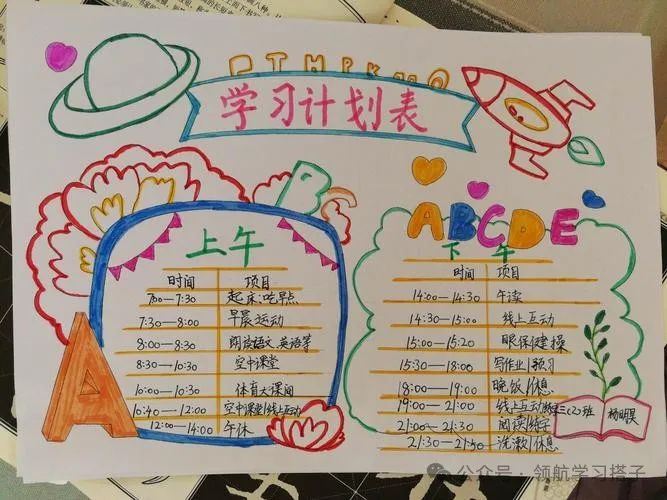 学习计划表
上午
时间 项目
7:00—7:30 起床吃早点
7:30—8:00 早晨运动
8:00—8:30 朗读语文英语等
8:30—10:30 空中课堂
10:00—10:30 体育大课间
10:40—12:00 空中课堂/线上互动
12:00—14:00 午休
A
B
ABCDE
下午
时间 项目
14:00—14:30 午读
14:30—15:00 线上互动
15:00—15:20 眼保健操
15:30—18:00 写作业/预习
18:00—19:00 晚饭/休息
19:00—21:00 线上互动
21:00—21:30 阅读/练字
21:30—21:50 洗漱/休息
三(2)班
公众号·领航学习搭子